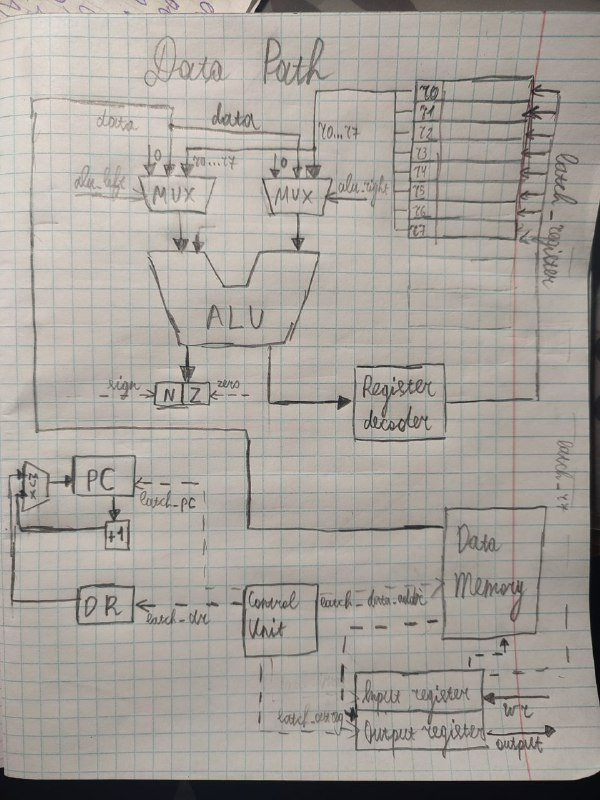 Data Path
data
data
0
r0...r7
0
r0...r7
alu_left
MUX
MUX
alu_right
r0
r1
r2
r3
r4
r5
r6
r7
latch_register
ALU
sign
N
Z
zero
Register
decoder
MUX
PC
latch_pc
+1
DR
latch_dr
Control
Unit
latch_data_addr
Data
Memory
latch_r7
Input register
Output register
output